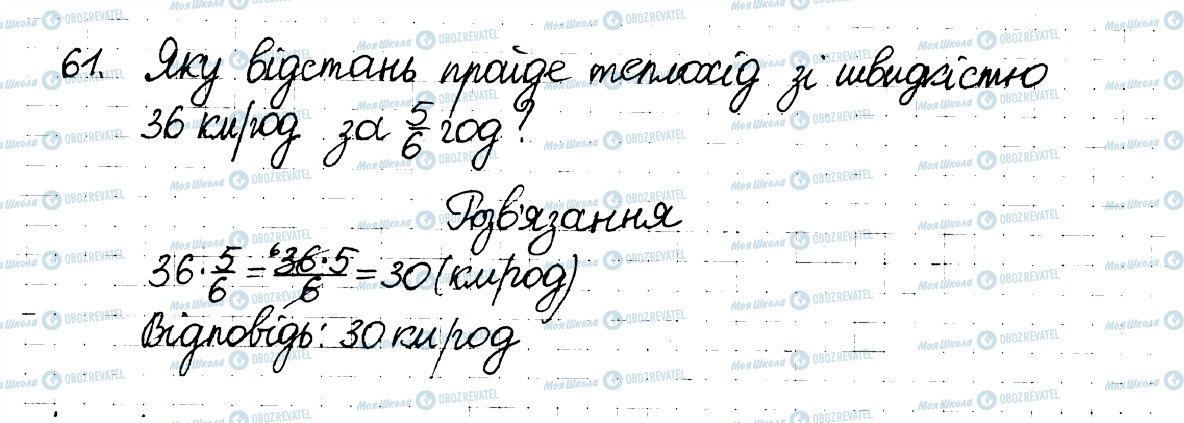 61. Яку відстань пройде теплохід зі швидкістю
36 км/год за 5/6 год?
Розв'язання
36 · 5/6 = ⁶36·5/6 = 30 (км/год)
Відповідь: 30 км/год